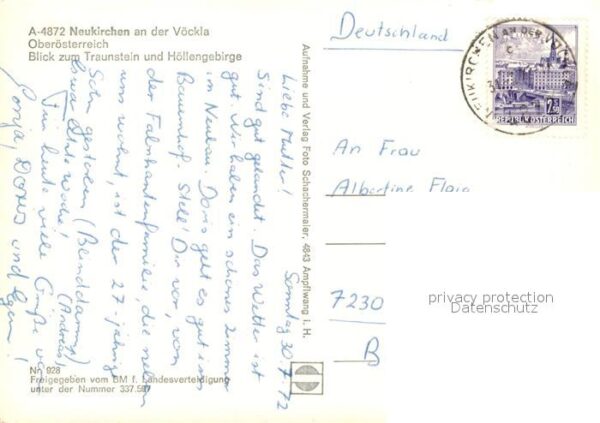 A-4872 Neukirchen an der Vöckla
Oberösterreich
Blick zum Traunstein und Höllengebirge
Sonntag 30.7.72
Liebe Mutter!
Sind gut gelandet. Das Wetter ist
gut. Wir haben ein schönes Zimmer
im Neubau. Doris geht es gut im
Bauernhof. Stell Dir vor, von
der Fabrikantenfamilie, die neben
uns wohnt, ist der 27-jährige
Sohn gestorben (Blinddarm)
letzte Woche! (Andreas)
Für heute viele Grüße von
Sonja, Doris und
Nr. 928
Freigegeben vom BM f. Landesverteidigung
unter der Nummer 337.597
Aufnahme und Verlag Foto Schachermaier, 4843 Ampflwang i. H.
Deutschland
NEUKIRCHEN AN DER VÖCKLA
2.50
REPUBLIK ÖSTERREICH
An Frau
Albertine Flaig
7230
B
privacy protection
Datenschutz